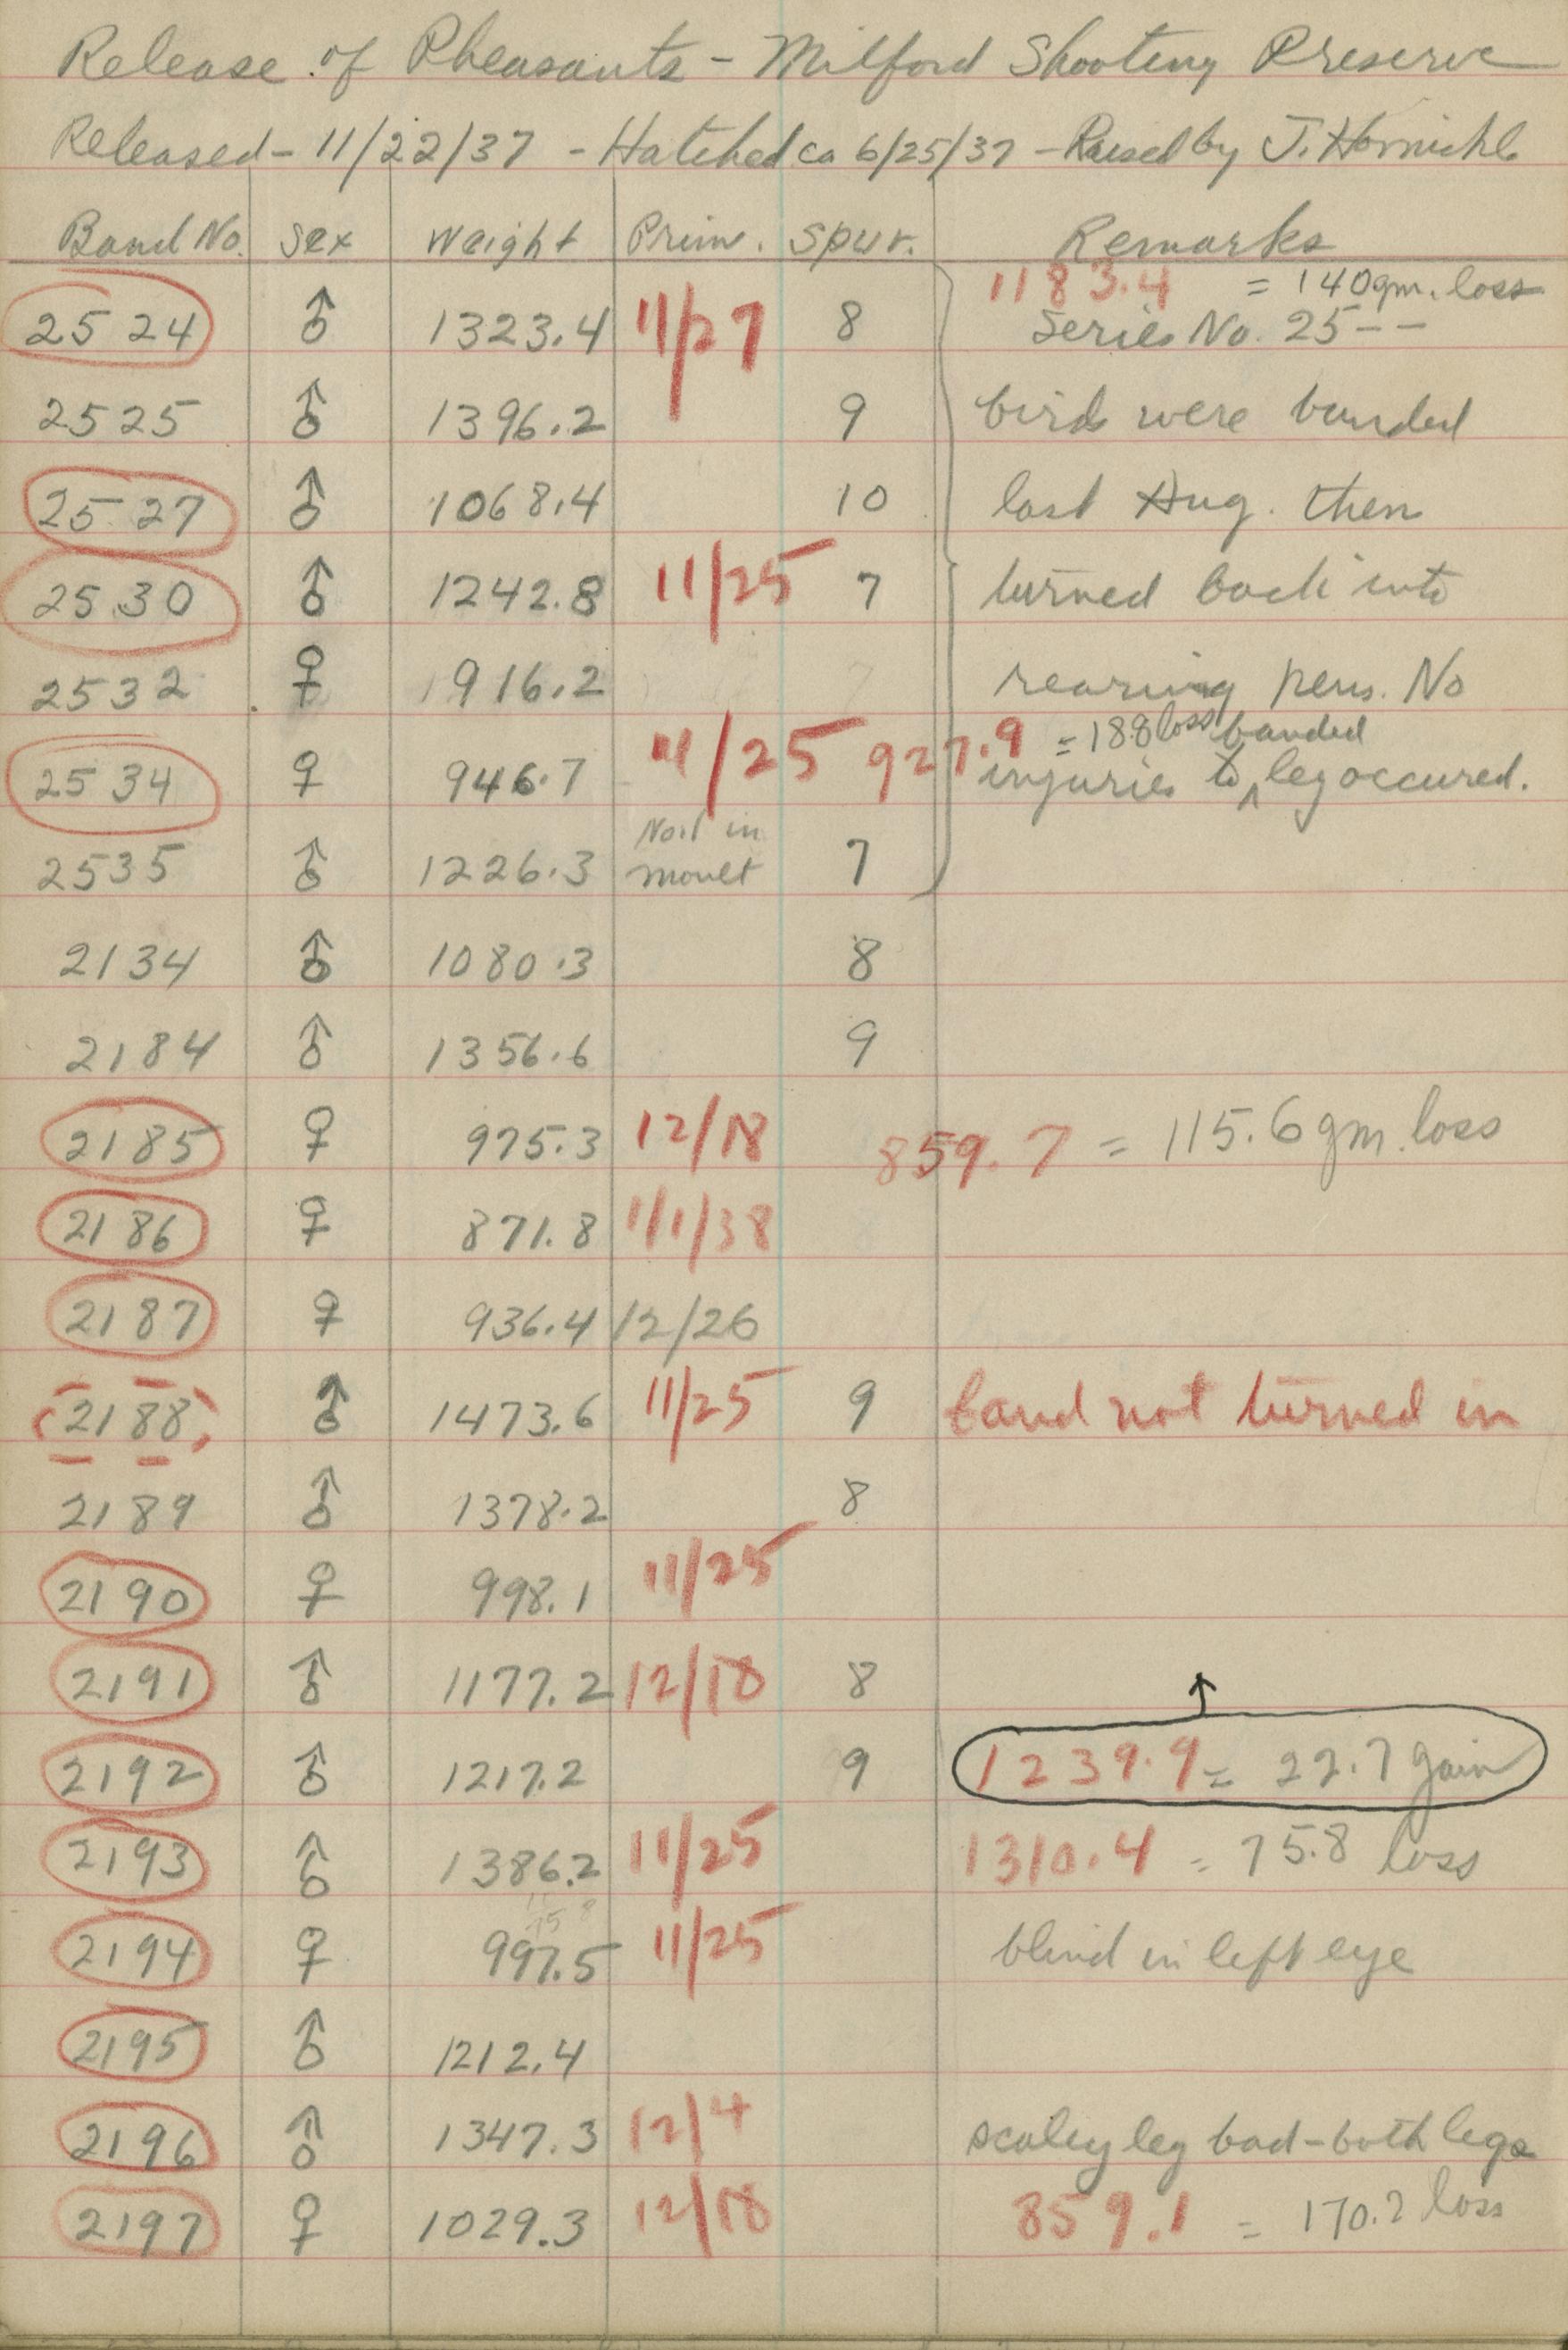 Release of Pheasants - Milford Shooting Preserve
Released - 11/22/37 - Hatched ca 6/25/37 - Raised by J.
Band No. Sex Weight Prim. Spur. Remarks
1183.4 = 140gm. loss
2524 ♂ 1323.4 11/27 8 Series No. 25--
2525 ♂ 1396.2 9 birds were banded
2527 ♂ 1068.4 10 last Aug. then
2530 ♂ 1242.8 11/25 7 turned back into
2532 ♀ 916.2 rearing pens. No
11/25 927.9 = 18.8 loss banded
2534 ♀ 946.7 injuries to ^ leg occured.
No.1 in
2535 ♂ 1226.3 moult 7
2134 ♂ 1080.3 8
2184 ♂ 1356.6 9
2185 ♀ 975.3 12/18 859.7 = 115.6 gm. loss
2186 ♀ 871.8 1/1/38
2187 ♀ 936.4 12/26
2188 ♂ 1473.6 11/25 9 band not turned in
2189 ♂ 1378.2 8
2190 ♀ 998.1 11/25
2191 ♂ 1177.2 12/18 8
2192 ♂ 1217.2 9 1239.9 = 22.7 gain
2193 ♂ 1386.2 11/25 1310.4 = 75.8 loss
2194 ♀ 997.5 11/25 blind in left eye
2195 ♂ 1212.4
2196 ♂ 1347.3 12/4 scaley leg bad - both legs
2197 ♀ 1029.3 12/18 859.1 = 170.2 loss